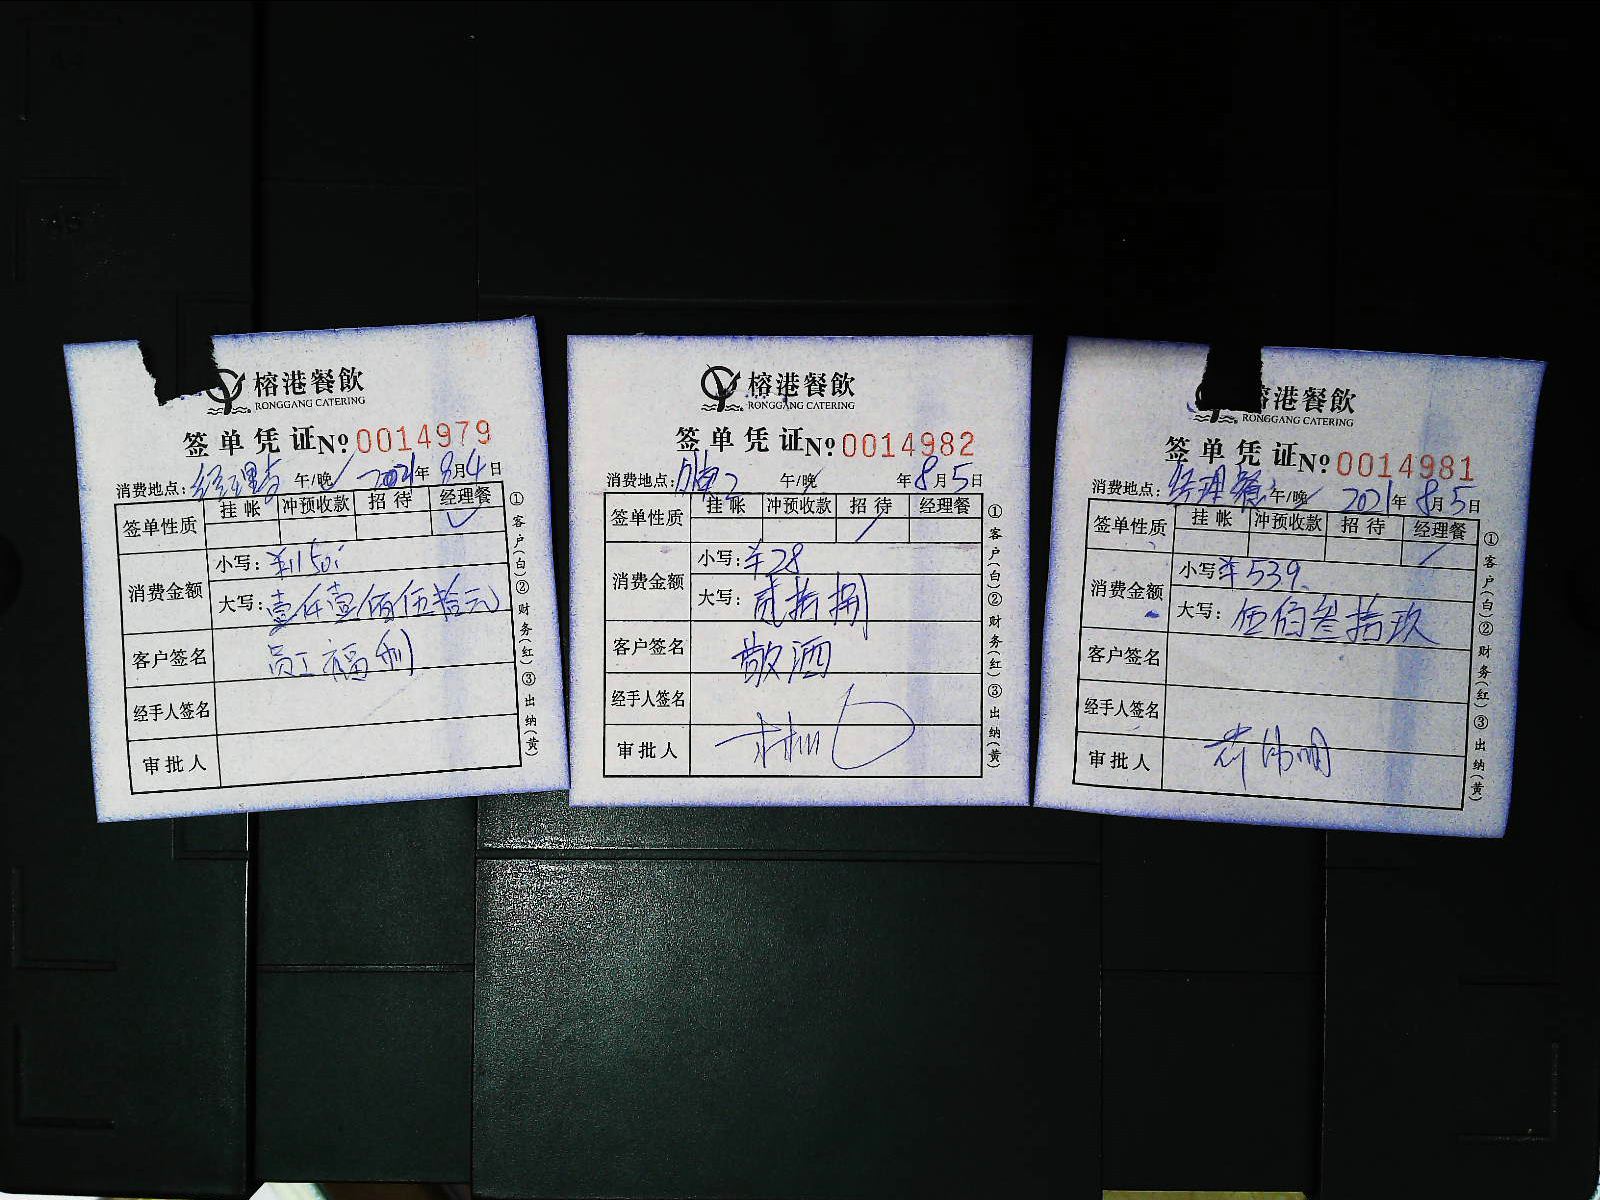 榕港餐飲
RONGGANG CATERING
签单凭证 No 0014979
消费地点: 午/晚 2021年8月4日
签单性质 挂帐 冲预收款 招待 经理餐
消费金额
小写: ¥1150
大写: 壹仟壹佰伍拾元
客户签名 员工福利
经手人签名
审批人
①客户(白)②财务(红)③出纳(黄)
榕港餐飲
RONGGANG CATERING
签单凭证 No 0014982
消费地点: 午/晚 年8月5日
签单性质 挂帐 冲预收款 招待 经理餐
消费金额
小写: ¥28
大写: 贰拾捌
客户签名 敬酒
经手人签名
审批人
①客户(白)②财务(红)③出纳(黄)
港餐飲
RONGGANG CATERING
签单凭证 No 0014981
消费地点: 经理餐 午/晚 2021年8月5日
签单性质 挂帐 冲预收款 招待 经理餐
消费金额
小写 ¥539
大写: 伍佰叁拾玖
客户签名
经手人签名
审批人
①客户(白)②财务(红)③出纳(黄)